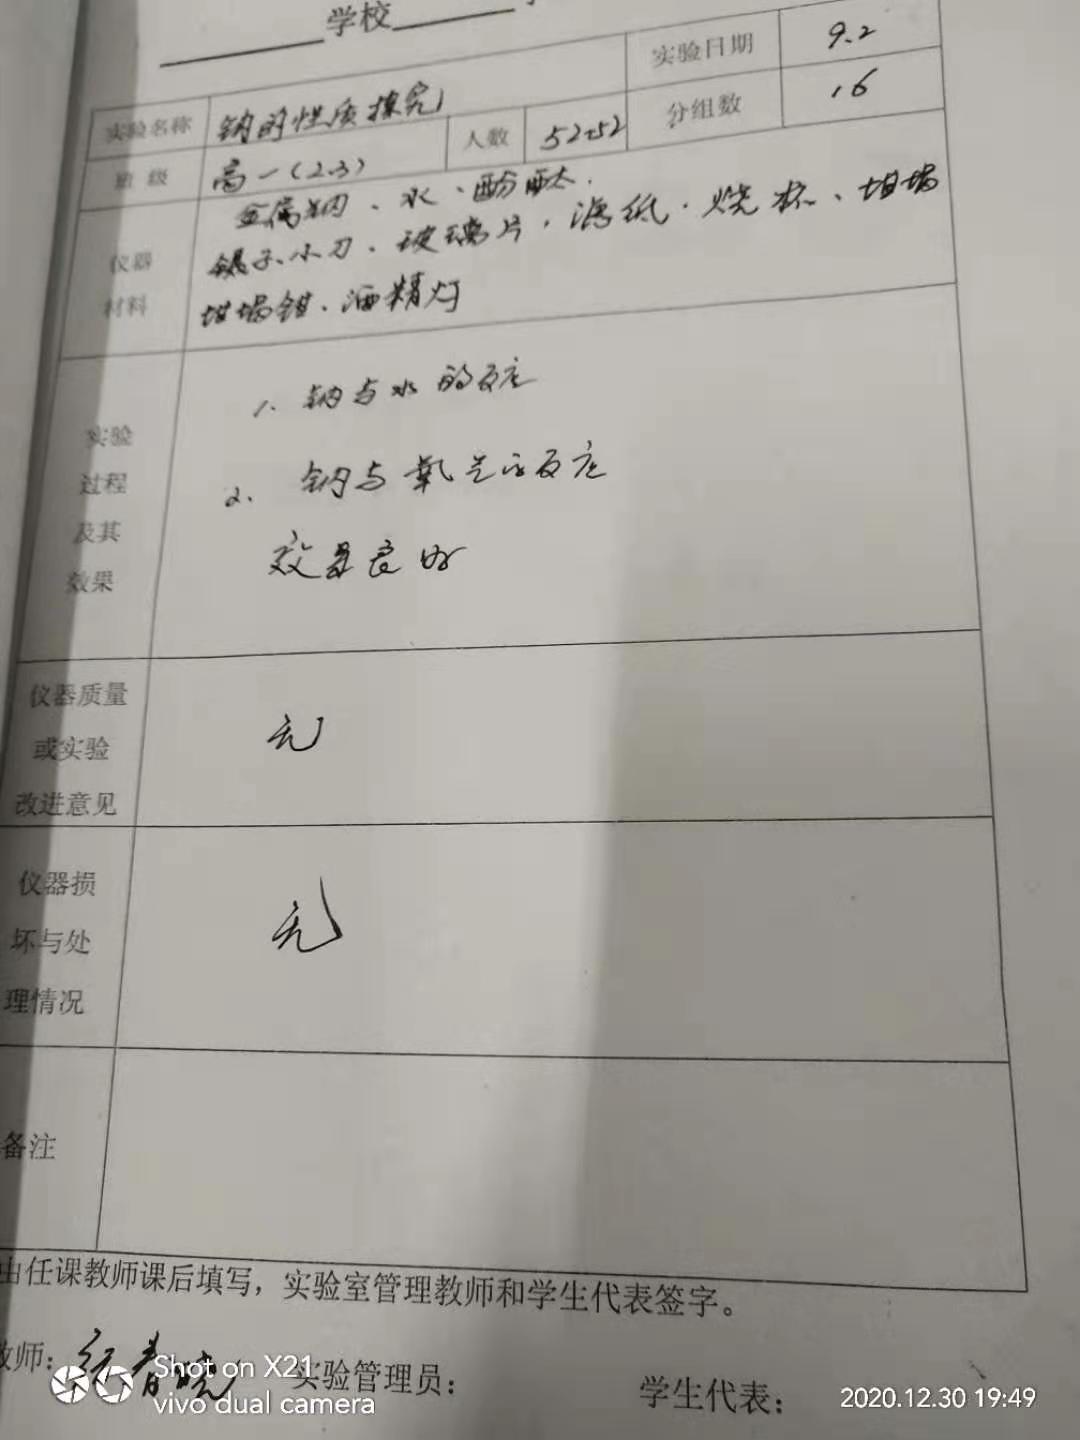 学校
实验名称 钠的性质探究 实验日期 9.2
班级 高一(2.3) 人数 52+52 分组数 16
仪器材料 金属钠、水、酚酞.
镊子、小刀、玻璃片、滤纸、烧杯、坩埚
坩埚钳、酒精灯
实验
过程
及其
效果
1. 钠与水的反应
2. 钠与氧气的反应
效果良好
仪器质量
或实验
改进意见
无
仪器损
坏与处
理情况
无
备注
由任课教师课后填写，实验室管理教师和学生代表签字。
教师: 春晓 实验管理员: 学生代表:
Shot on X21
vivo dual camera
2020.12.30 19:49